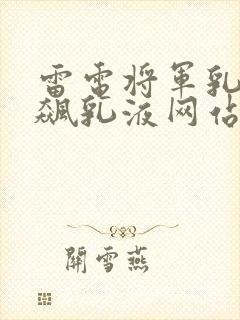 雷電将軍乳
飆乳液网佔
開雪燕